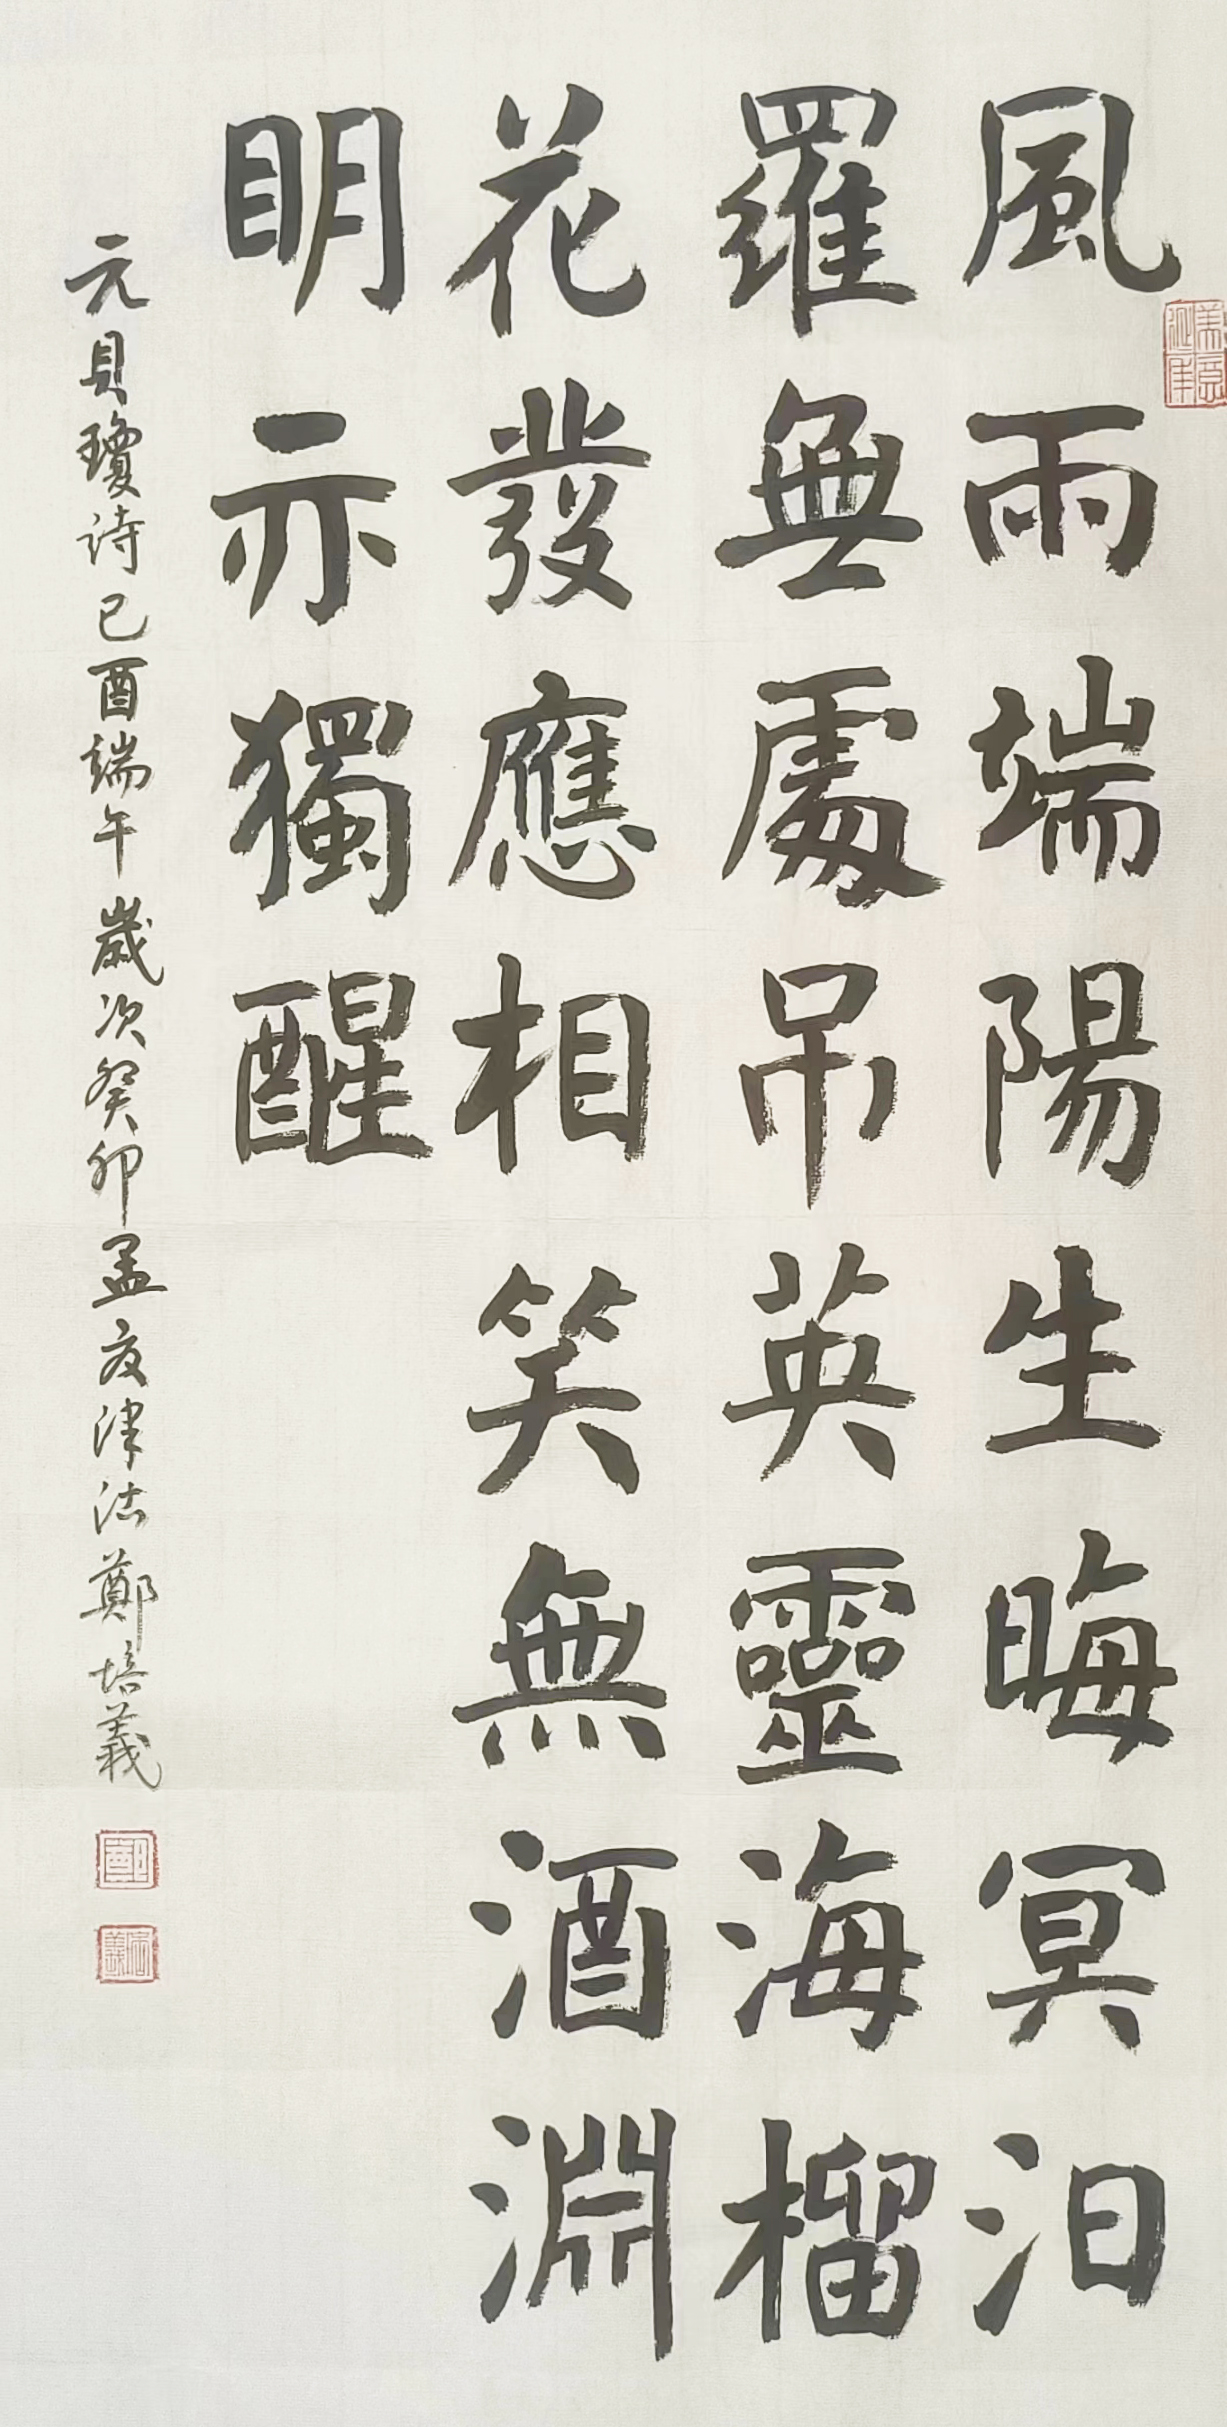 風雨端陽生晦冥汨
羅無處吊英靈海榴
花發應相笑無酒淵
明亦獨醒
元貝瓊诗己酉端午歲次癸卯孟夏津沽鄭培義